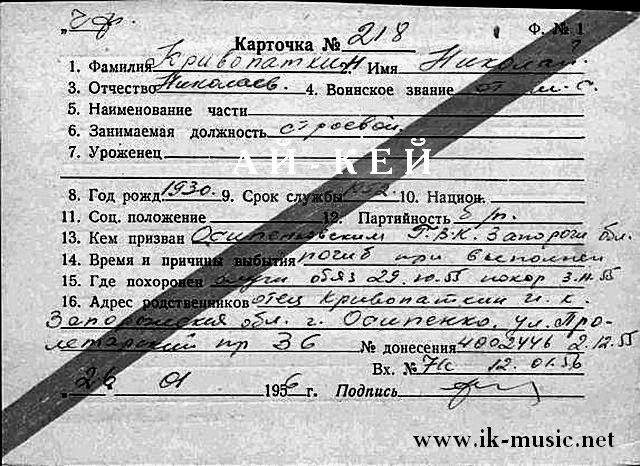 „ Ф. № 1
Карточка № 218
1. Фамилия Кривопаткин 2. Имя Николай
3. Отчество Николаев. 4. Воинское звание ст. м-с
5. Наименование части
6. Занимаемая должность строевой
7. Уроженец
АЙ-КЕЙ
8. Год рожд. 1930. 9. Срок службы 1952. 10. Национ.
11. Соц. положение 12. Партийность б/п.
13. Кем призван Осипенковским Г.В.К. Запорож обл.
14. Время и причины выбытия погиб при выполнен
15. Где похоронен служ обяз 29.10.55 похор 3.11.55
16. Адрес родственников отец Кривопаткин Н. К.
Запорожская обл. г. Осипенко, ул. Про-
летарский пр 36 № донесения 4002446 2.12.55
Вх. № 12.01.56
„26 01 1956 г. Подпись
www.ik-music.net